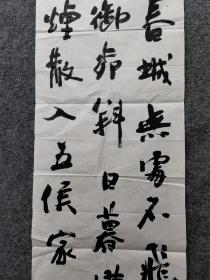 春城無處不飛
御柳斜日暮漢
煙散入五侯家